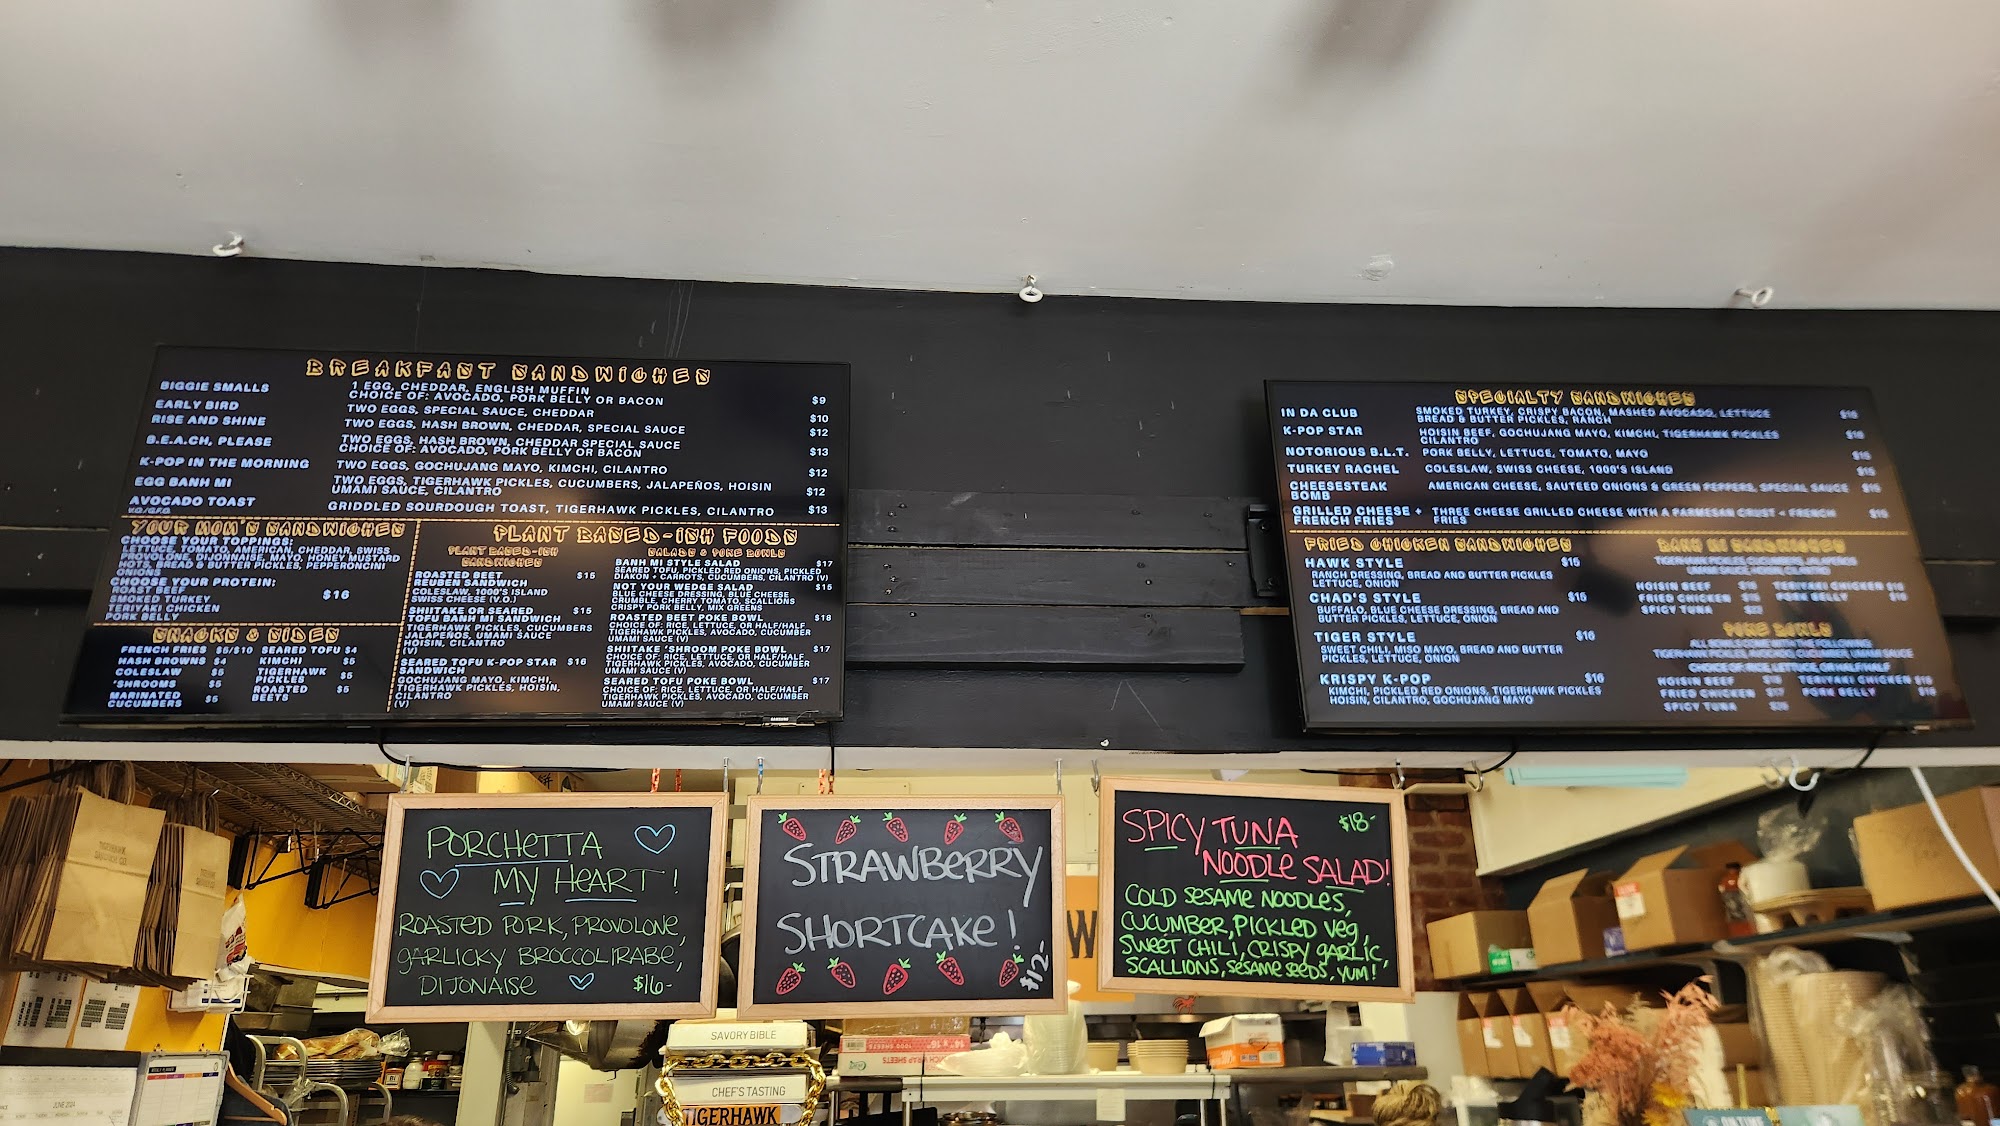 BREAKFAST SANDWICHES
BIGGIE SMALLS
1 EGG, CHEDDAR, ENGLISH MUFFIN
CHOICE OF: AVOCADO, PORK BELLY OR BACON
$9
EARLY BIRD
TWO EGGS, SPECIAL SAUCE, CHEDDAR
$10
RISE AND SHINE
TWO EGGS, HASH BROWN, CHEDDAR, SPECIAL SAUCE
$12
B.E.A.CH, PLEASE
TWO EGGS, HASH BROWN, CHEDDAR SPECIAL SAUCE
CHOICE OF: AVOCADO, PORK BELLY OR BACON
$13
K-POP IN THE MORNING
TWO EGGS, GOCHUJANG MAYO, KIMCHI, CILANTRO
$12
EGG BANH MI
TWO EGGS, TIGERHAWK PICKLES, CUCUMBERS, JALAPEÑOS, HOISIN
UMAMI SAUCE, CILANTRO
$12
AVOCADO TOAST
V.O./G.F.O.
GRIDDLED SOURDOUGH TOAST, TIGERHAWK PICKLES, CILANTRO
$13
YOUR MOM'S SANDWICHES
CHOOSE YOUR TOPPINGS:
LETTUCE, TOMATO, AMERICAN, CHEDDAR, SWISS
PROVOLONE, DIJONNAISE, MAYO, HONEY MUSTARD
HOTS, BREAD & BUTTER PICKLES, PEPPERONCINI
ONIONS
CHOOSE YOUR PROTEIN:
ROAST BEEF
SMOKED TURKEY
TERIYAKI CHICKEN
PORK BELLY
$16
SNACKS & SIDES
FRENCH FRIES $5/$10
HASH BROWNS $4
COLESLAW $5
'SHROOMS $5
MARINATED
CUCUMBERS $5
SEARED TOFU $4
KIMCHI $5
TIGERHAWK
PICKLES $5
ROASTED
BEETS $5
PLANT BASED-ISH FOODS
PLANT BASED-ISH
SANDWICHES
ROASTED BEET
REUBEN SANDWICH $15
COLESLAW, 1000'S ISLAND
SWISS CHEESE (V.O.)
SHIITAKE OR SEARED $15
TOFU BANH MI SANDWICH
TIGERHAWK PICKLES, CUCUMBERS
JALAPEÑOS, UMAMI SAUCE
HOISIN, CILANTRO
(V)
SEARED TOFU K-POP STAR $16
SANDWICH
GOCHUJANG MAYO, KIMCHI,
TIGERHAWK PICKLES, HOISIN,
CILANTRO
(V)
SALADS & POKE BOWLS
BANH MI STYLE SALAD $17
SEARED TOFU, PICKLED RED ONIONS, PICKLED
DIAKON + CARROTS, CUCUMBERS, CILANTRO (V)
NOT YOUR WEDGE SALAD $15
BLUE CHEESE DRESSING, BLUE CHEESE
CRUMBLE, CHERRY TOMATO, SCALLIONS
CRISPY PORK BELLY, MIX GREENS
ROASTED BEET POKE BOWL $18
CHOICE OF: RICE, LETTUCE, OR HALF/HALF
TIGERHAWK PICKLES, AVOCADO, CUCUMBER
UMAMI SAUCE (V)
SHIITAKE 'SHROOM POKE BOWL $17
CHOICE OF: RICE, LETTUCE, OR HALF/HALF
TIGERHAWK PICKLES, AVOCADO, CUCUMBER
UMAMI SAUCE (V)
SEARED TOFU POKE BOWL $17
CHOICE OF: RICE, LETTUCE, OR HALF/HALF
TIGERHAWK PICKLES, AVOCADO, CUCUMBER
UMAMI SAUCE (V)
SAMSUNG
SPECIALTY SANDWICHES
IN DA CLUB
SMOKED TURKEY, CRISPY BACON, MASHED AVOCADO, LETTUCE
BREAD & BUTTER PICKLES, RANCH
K-POP STAR
HOISIN BEEF, GOCHUJANG MAYO, KIMCHI, TIGERHAWK PICKLES
CILANTRO
NOTORIOUS B.L.T.
PORK BELLY, LETTUCE, TOMATO, MAYO
$15
TURKEY RACHEL
COLESLAW, SWISS CHEESE, 1000'S ISLAND
$15
CHEESESTEAK
BOMB
AMERICAN CHEESE, SAUTEED ONIONS & GREEN PEPPERS, SPECIAL SAUCE
$15
GRILLED CHEESE +
FRENCH FRIES
THREE CHEESE GRILLED CHEESE WITH A PARMESAN CRUST + FRENCH
FRIES
FRIED CHICKEN SANDWICHES
HAWK STYLE $15
RANCH DRESSING, BREAD AND BUTTER PICKLES
LETTUCE, ONION
CHAD'S STYLE $15
BUFFALO, BLUE CHEESE DRESSING, BREAD AND
BUTTER PICKLES, LETTUCE, ONION
TIGER STYLE $16
SWEET CHILI, MISO MAYO, BREAD AND BUTTER
PICKLES, LETTUCE, ONION
KRISPY K-POP $16
KIMCHI, PICKLED RED ONIONS, TIGERHAWK PICKLES
HOISIN, CILANTRO, GOCHUJANG MAYO
BANH MI SANDWICHES
TIGERHAWK PICKLES, CUCUMBERS, JALAPEÑOS
UMAMI SAUCE, HOISIN, CILANTRO
HOISIN BEEF
TERIYAKI CHICKEN
FRIED CHICKEN
PORK BELLY
SPICY TUNA
POKE BOWLS
ALL BOWLS COME WITH THE FOLLOWING
TIGERHAWK PICKLES, AVOCADO, CUCUMBER, UMAMI SAUCE
CHOICE OF: RICE, LETTUCE, OR HALF/HALF
HOISIN BEEF
TERIYAKI CHICKEN
FRIED CHICKEN
PORK BELLY
SPICY TUNA
PORCHETTA
MY HEART!
ROASTED PORK, PROVOLONE,
GARLICKY BROCCOLI RABE,
DIJONAISE $16-
STRAWBERRY
SHORTCAKE!
$12-
SPICY TUNA $18-
NOODLE SALAD!
COLD SESAME NOODLES,
CUCUMBER, PICKLED VEG,
SWEET CHILI, CRISPY GARLIC,
SCALLIONS, SESAME SEEDS, YUM!
SAVORY BIBLE
CHEF'S TASTING
TIGERHAWK
JUNE 2024